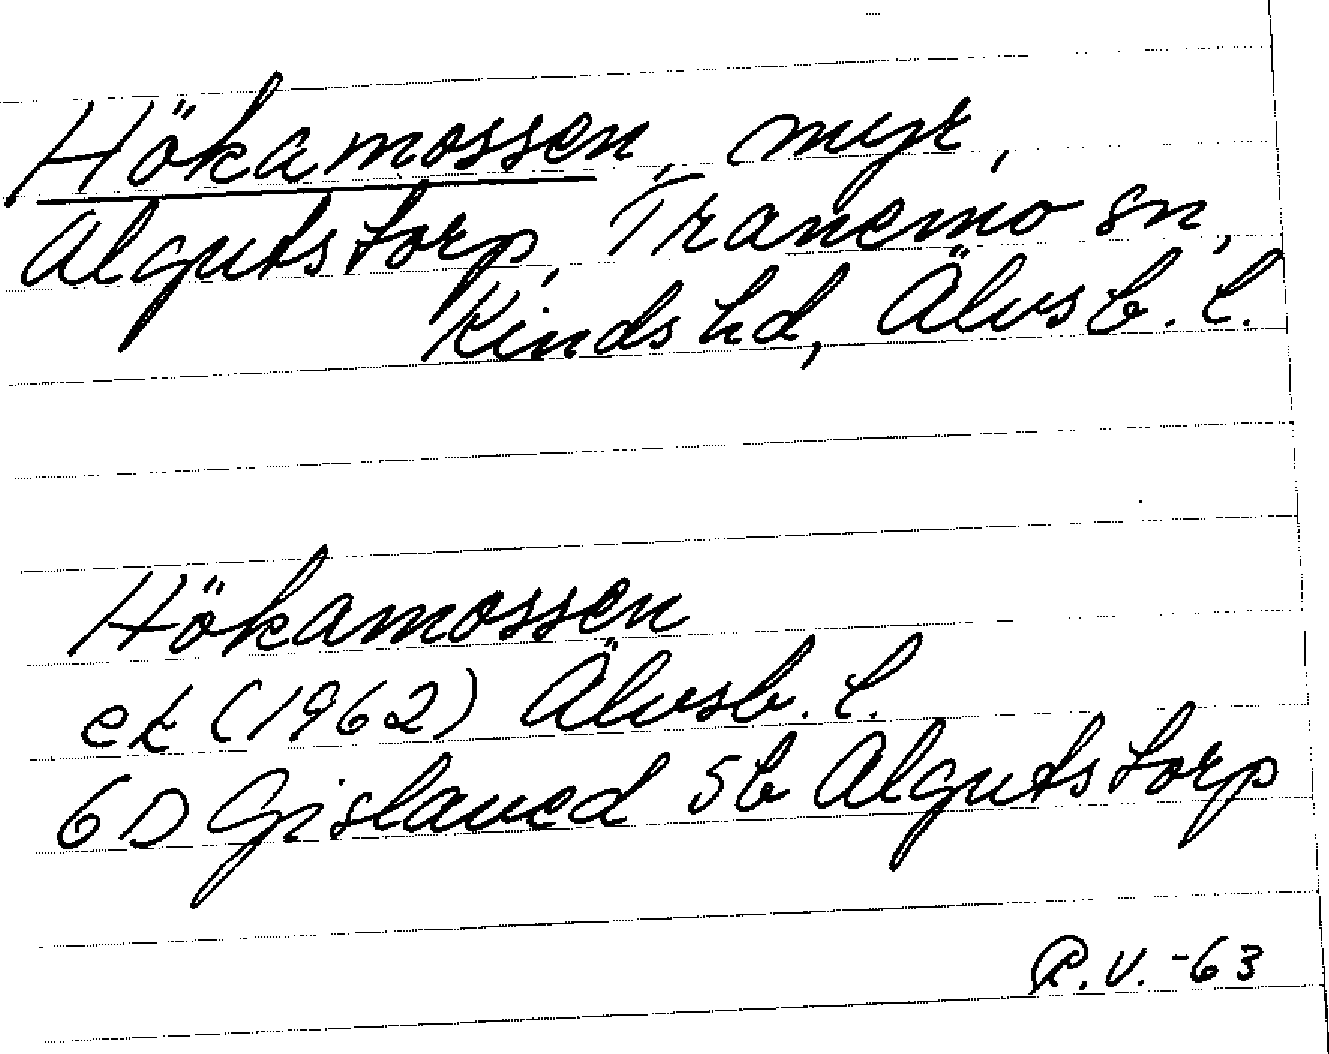 Hökamossen, myr,
Algutstorp, Tranemo sn,
Kinds hd, Älvsb. l.
Hökamossen
ek (1962) Älvsb. l.
6D Gislaved 5b Algutstorp
R.V. -63